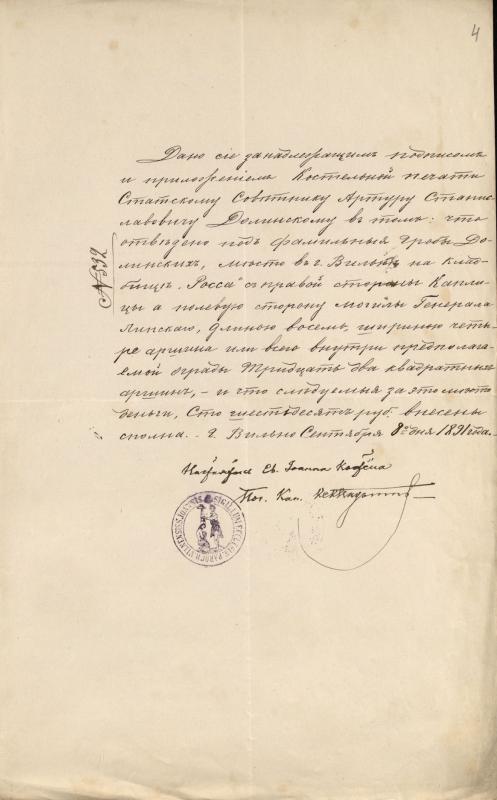 4
Дано сіе за надлежащимъ подписомъ
и приложеніемъ Костельной печати
Статскому Совѣтнику Артуру Станис-
лавовичу Долинскому въ томъ: что
отведено подъ фамильные гробы До-
линскихъ, мѣсто въ г. Вильнѣ на клад-
бищѣ "Росса" съ правой стороны Капли-
цы а полевую сторону могилы Генерала
Липскаго, длиною восемь, шириною четы-
ре аршина или всего внутри предполага-
емой ограды тридцать два квадратныхъ
аршинъ, - и что слѣдуемыя за это мѣсто
деньги, Сто шестьдесятъ руб. внесены
сполна. - г. Вильно Сентября 8го дня 1891 года.
№ 532
Св. Іоанна
Кан.
SIGILLUM ECCLESIAE PAROCH. VILNENSIS S. JOANNIS